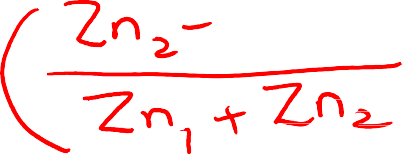 ( Zn₂ -
Zn₁ + Zn₂